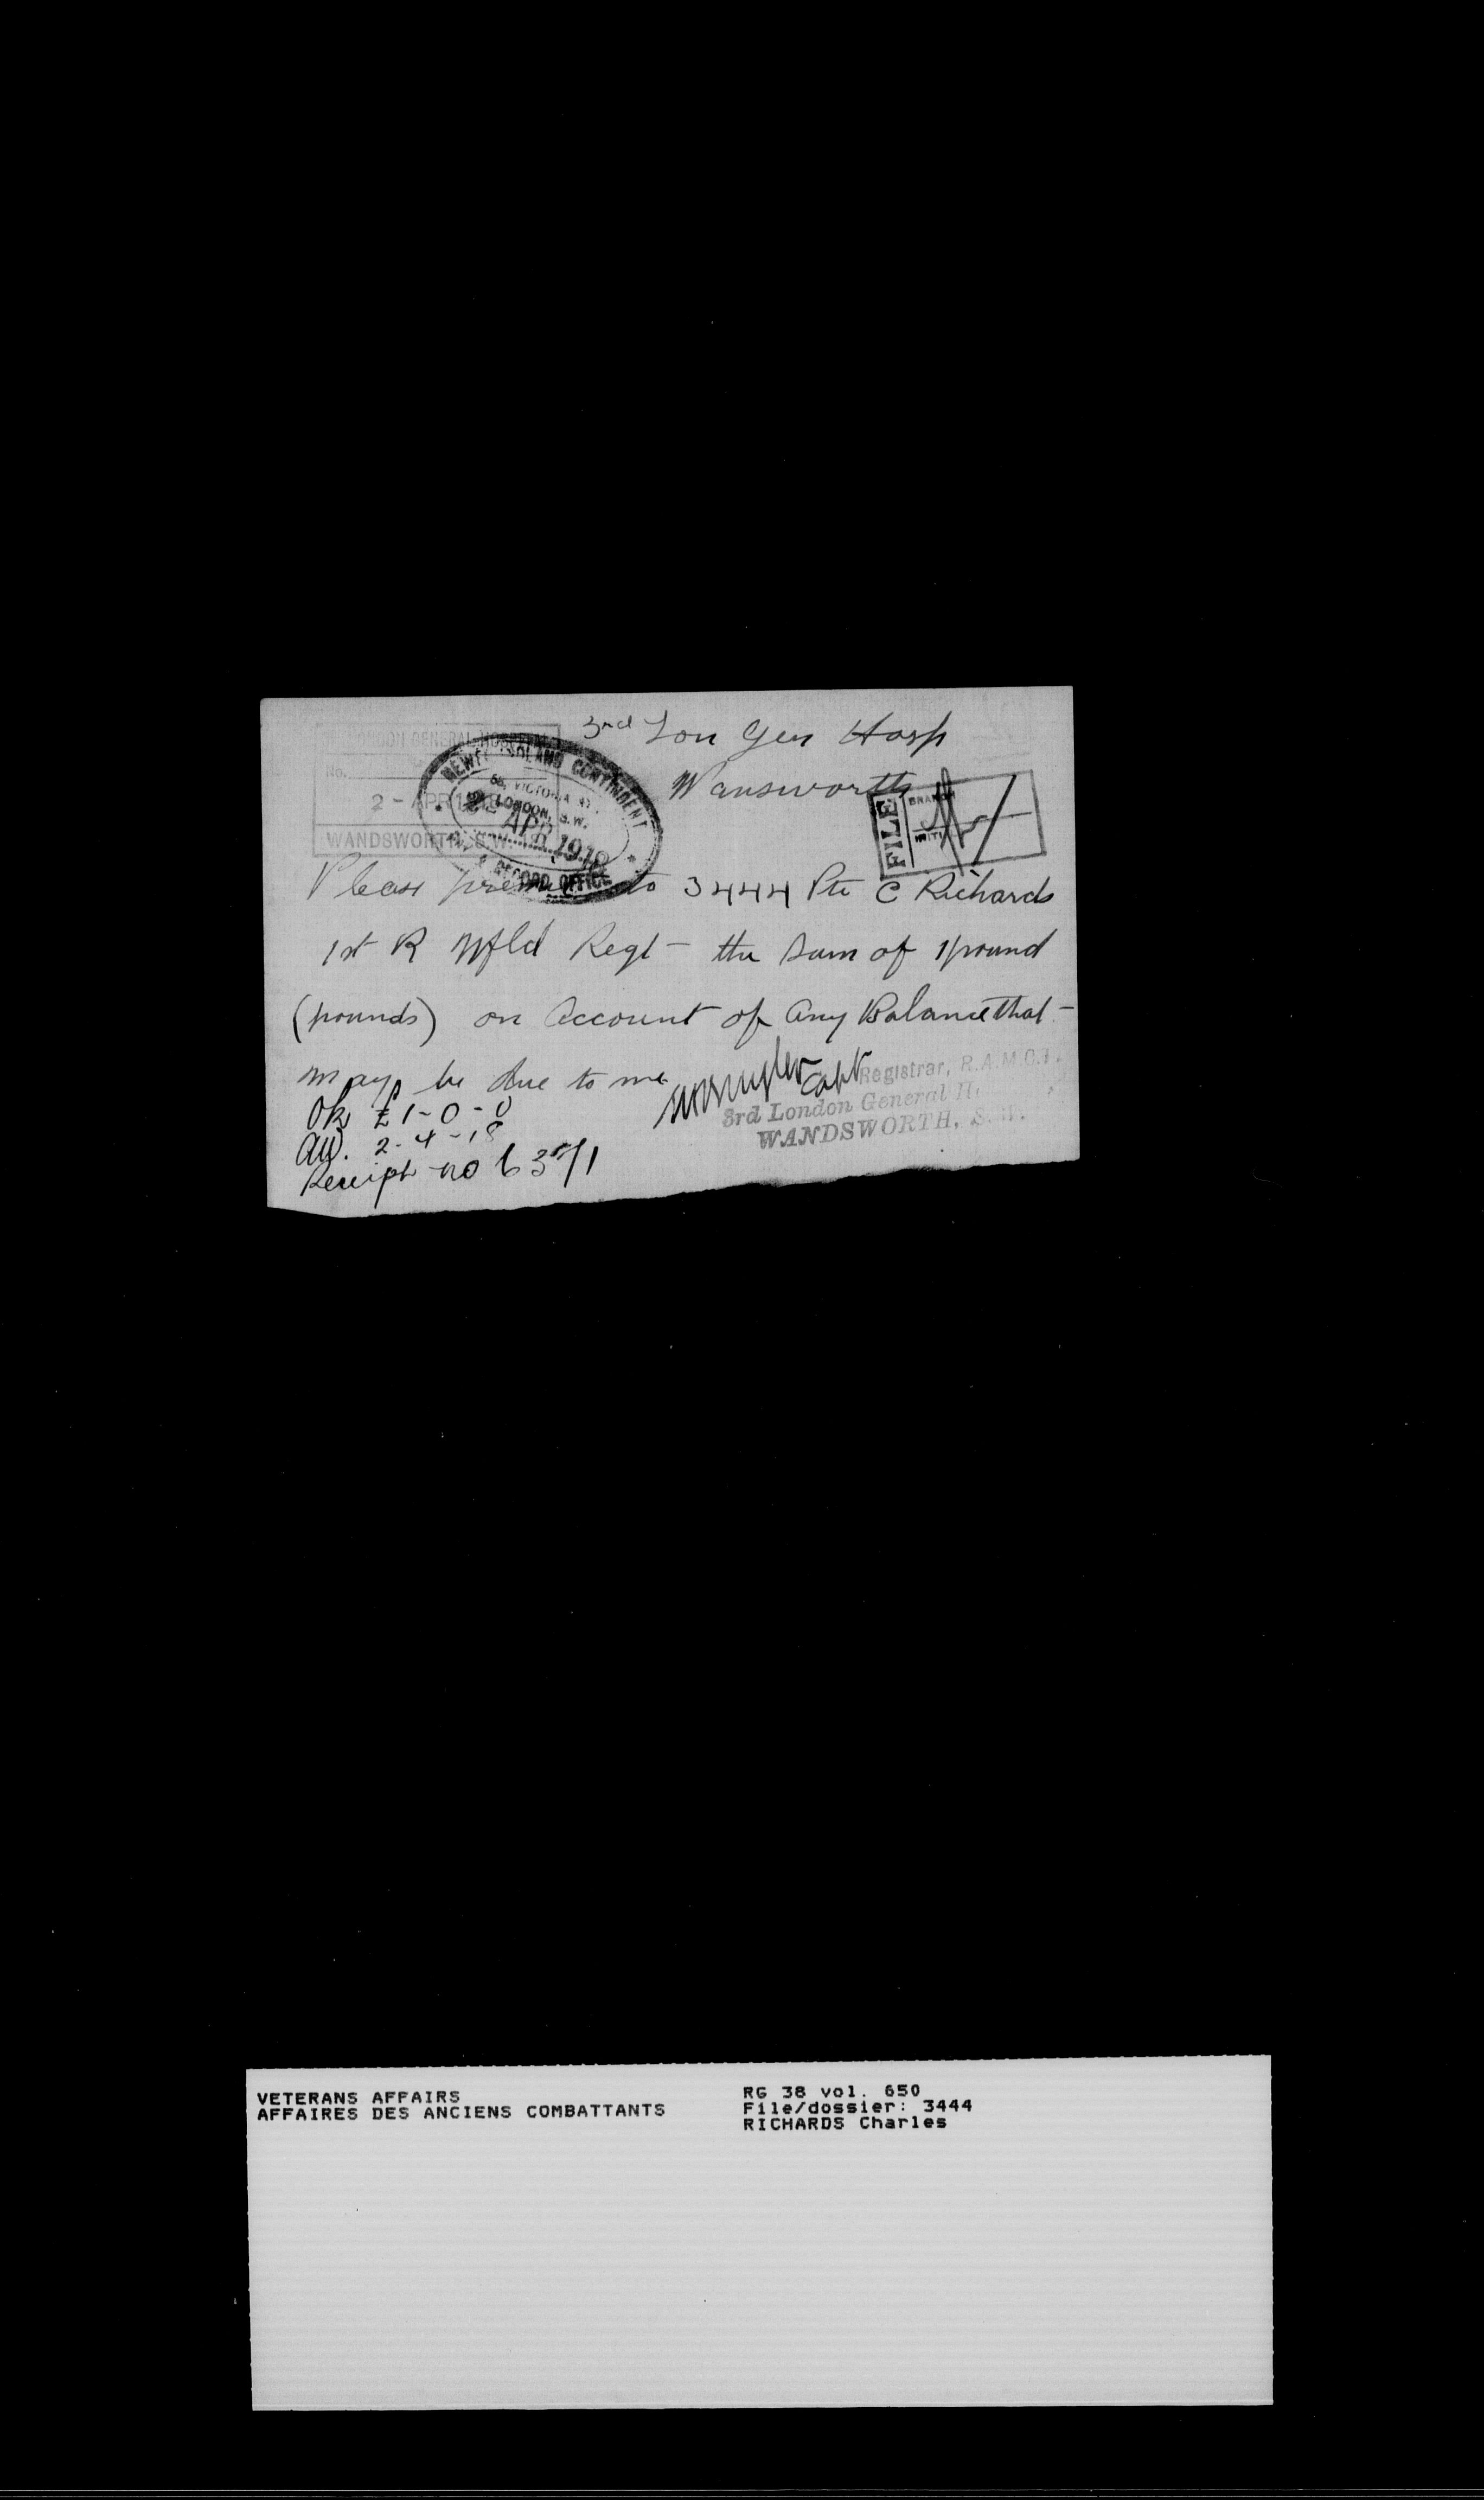 3rd Lon Gen Hosp
Wansworth
3RD LONDON GENERAL HOSPITAL
No.
2 - APR 1918
WANDSWORTH, S.W.
NEWFOUNDLAND CONTINGENT
58, VICTORIA ST.
LONDON, S.W.
2 APR 1918
RECORD OFFICE
FILE
BRANCH
INITI
Please to 3444 Pte C Richards
1st R Nfld Regt - the sum of 1 pound
(pounds) on account of any Balance that -
may be due to me
Capt Registrar, R.A.M.C.T.
3rd London General
WANDSWORTH, S.W.
Ok £1-0-0
AW. 2-4-18
Receipt no
VETERANS AFFAIRS
AFFAIRES DES ANCIENS COMBATTANTS
RG 38 vol. 650
File/dossier: 3444
RICHARDS Charles